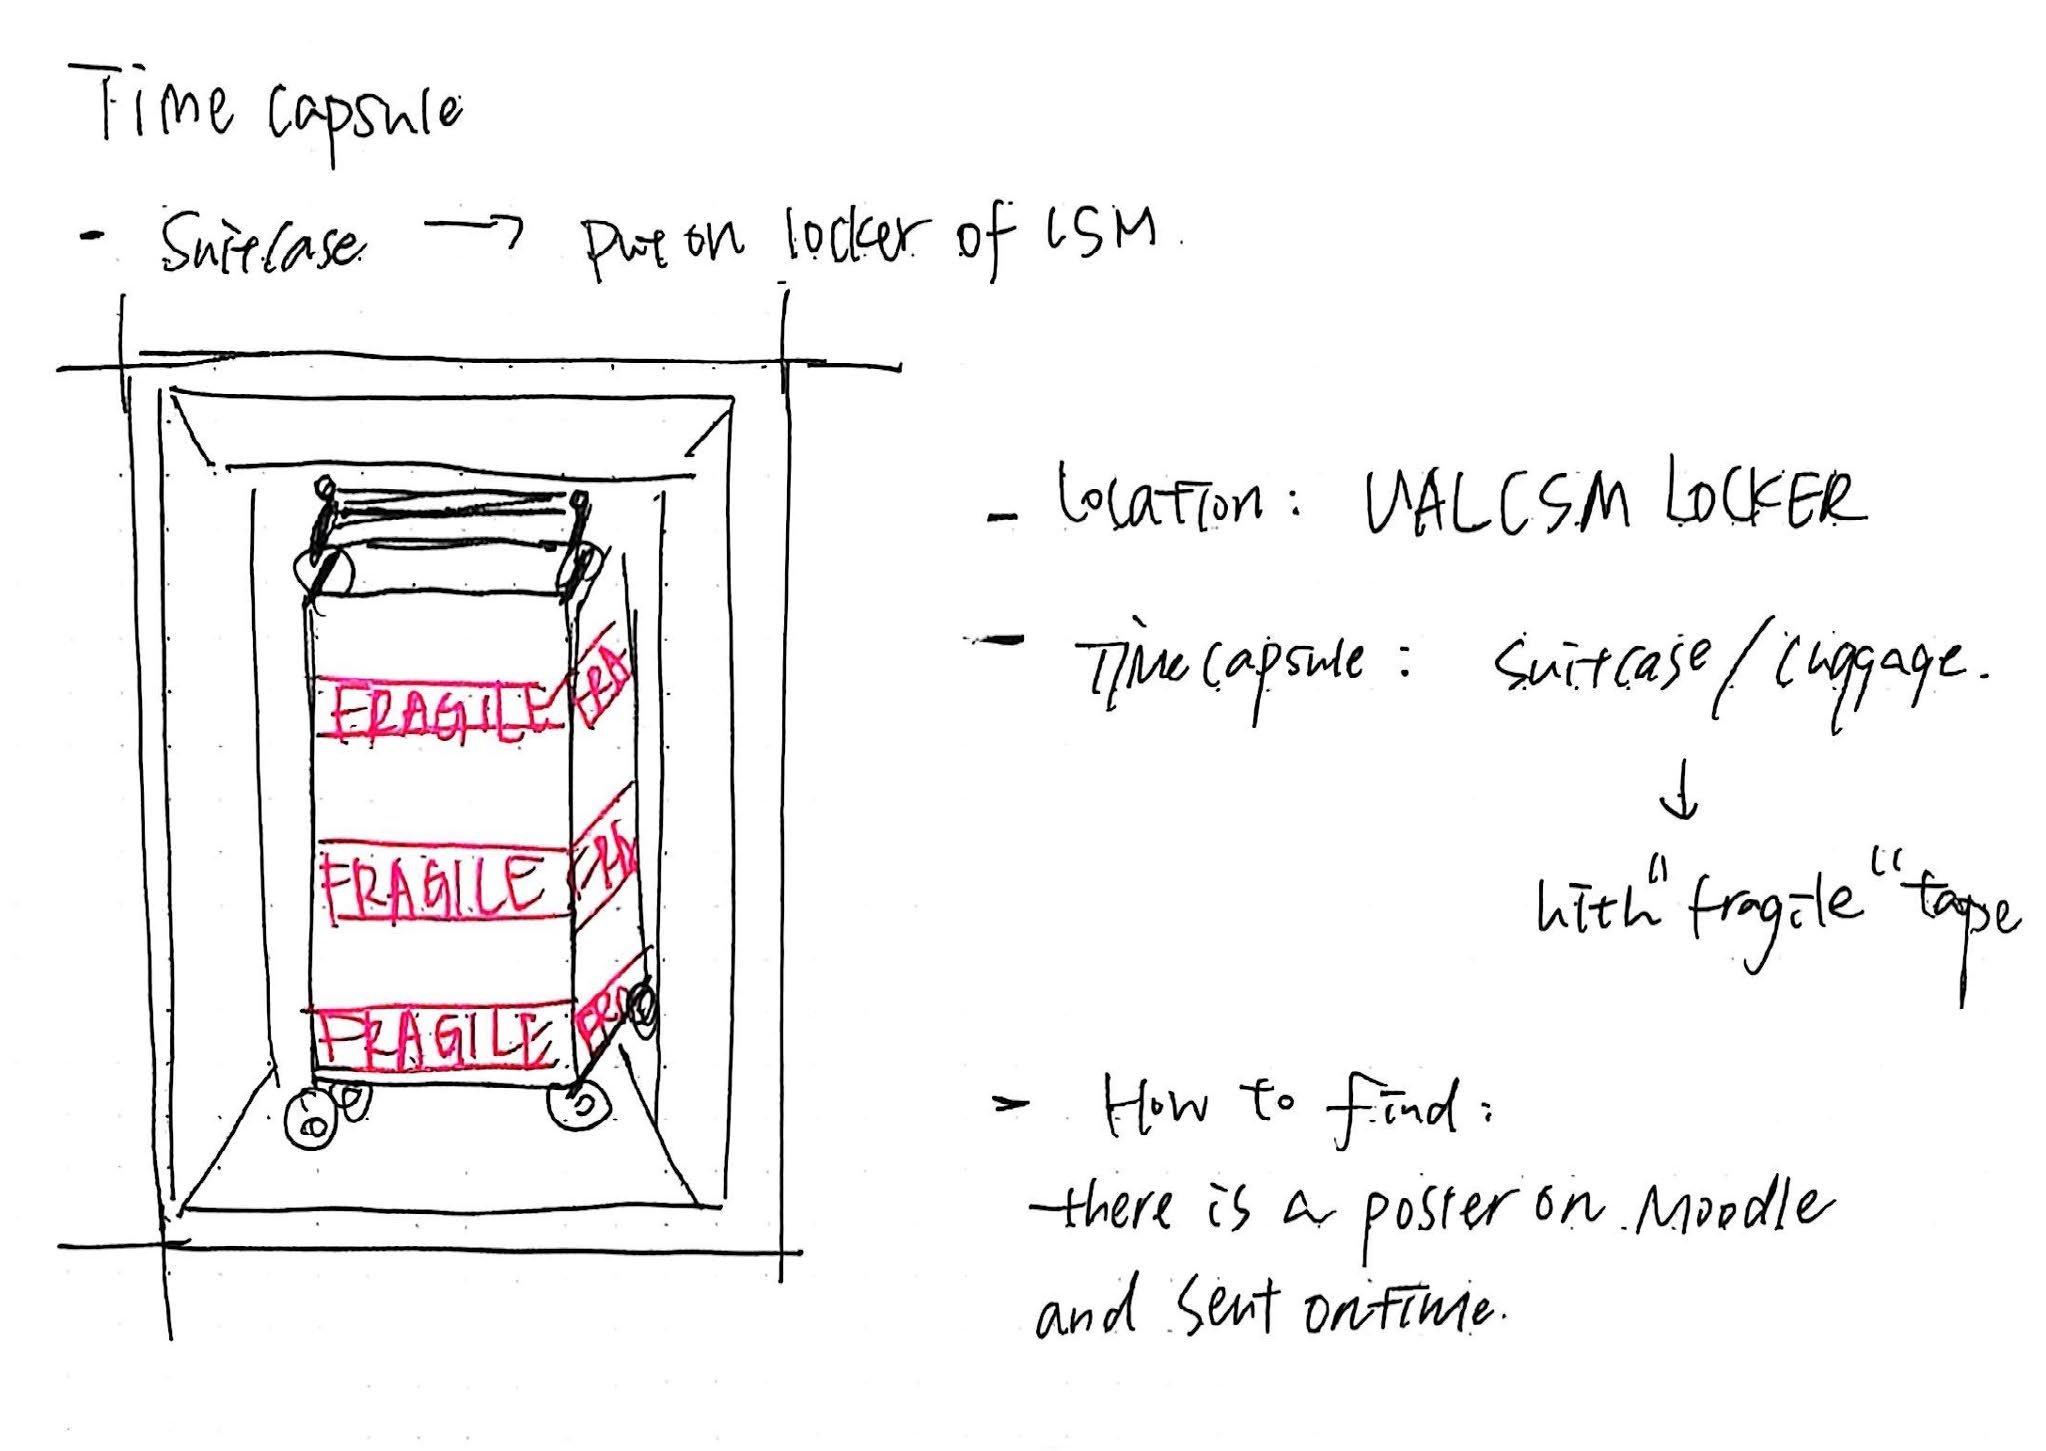 Time capsule
- Suitcase → put on locker of CSM.
- Location: UAL CSM LOCKER
- Time capsule: suitcase/luggage.
↓
with "fragile" tape
FRAGILE FRA
FRAGILE FRA
FRAGILE FRA
- How to find:
there is a poster on Moodle
and sent on time.